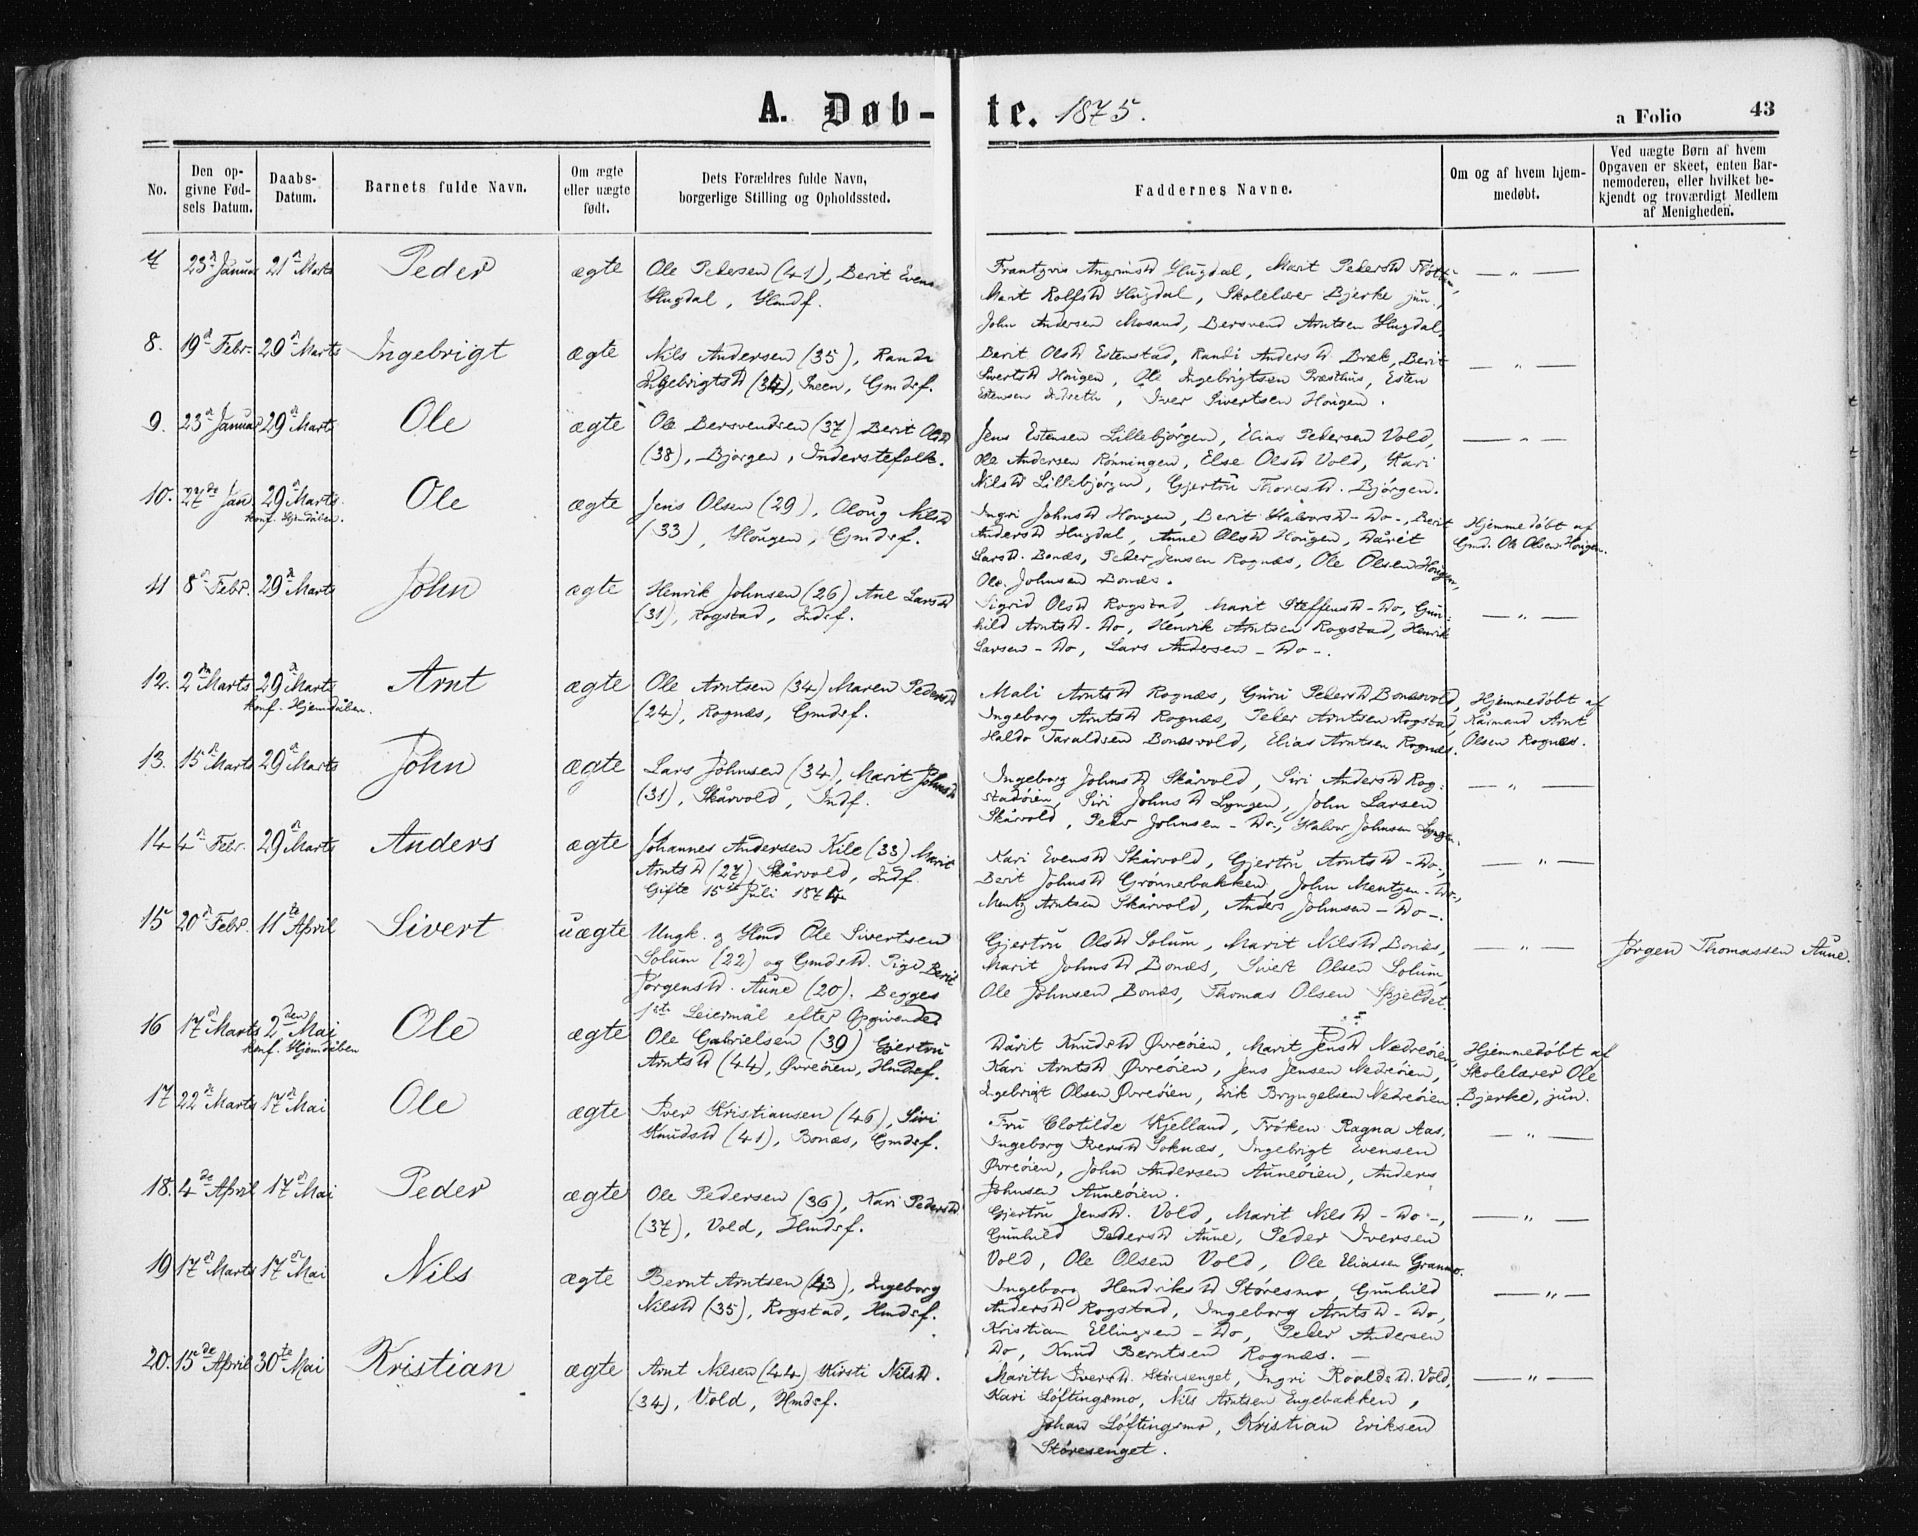 A. Døb-te. 1875.
a Folio 43
No.
Den op-
givne Fød-
sels Datum.
Daabs-
Datum.
Barnets fulde Navn.
Om ægte
eller uægte
født.
Dets Forældres fulde Navn,
borgerlige Stilling og Opholdssted.
Faddernes Navne.
Om og af hvem hjem-
medøbt.
Ved uægte Børn af hvem
Opgaven er skeet, enten Bar-
nemoderen, eller hvilket be-
kjendt og troværdigt Medlem
af Menigheden.
7 23d Januar 21d Marts Peder ægte
Ole Pedersen (41), Berit Evens
Hugdal, Hmdf.
Marit Pedersd
Marit Rolfsd Hugdal, Skolelærer Bjerke jun.,
John Andersen Mosand, Bersvend Arntsen Hugdal,
— " —
8. 19d Febr. 29d Marts Ingebrigt ægte
Nils Andersen (35), Randi
Ingebrigtsd (34), Gmdsf.
Berit Olsd Estenstad, Randi Andersd Bræk, Berit
Sivertsd Hougen, Ole Ingebrigtsen Præsthus, Esten
Estensen Indseth, Iver Sivertsen Hougen.
— " —
9. 23d Januar 29d Marts Ole ægte
Ole Bersvendsen (37) Berit Olsd
(38), Bjørgen, Inderstefolk.
Jens Estensen Lillebjørgen, Elias Pedersen Vold,
Ole Andersen Rønningen, Else Olsd Vold, Kari
Nilsd Lillebjørgen, Gjertru Thoresd. Bjørgen.
— " —
10. 27de Jan 29d Marts Ole ægte
konf. Hjemdåben.
Jens Olsen (29), Oloug Nilsd
(33), Hougen, Gmdsf.
Ingri Johnsd Hougen, Berit Halvorsd - Do -, Berit
Andersd Hugdal, Anne Olsd Hougen, Dårit
Larsd. Bonæs, Peder Jensen Rognæs, Ole Olsen Hougen,
Ole Johnsen Bonæs.
Hjemmedøbt af
Gmd. Ole Olsen Hougen.
11 8d Febr. 29d Marts John ægte
Henrik Johnsen (26) Ane Larsd
(31), Rogstad, Indsf.
Sigrid Olsd Rogstad, Marit Steffensd - Do, Gun-
hild Arntsd - Do, Henrik Arntsen Rogstad, Henrik
Larsen - Do, Lars Andersen - Do -.
— " —
12. 2den Marts 29d Marts Arnt ægte
konf. Hjemdåben.
Ole Arntsen (34) Maren Pedersd
(24), Rognæs, Gmdsf.
Mali Arntsd Rognæs, Guru Pedersd Bonæsvold,
Ingeborg Arntsd Rognæs, Peder Arntsen Rogstad,
Haldo Taraldsen Bonæsvold, Elias Arntsen Rognæs.
Hjemmedøbt af
Kårmand Arnt
Olsen Rognæs.
13. 15d Marts 29d Marts John ægte
Lars Johnsen (34), Marit Johnsd
(31), Skårvold, Indf.
Ingeborg Johnsd Skårvold, Siri Andersd Rog-
stadøien, Siri Johnsd Lyngen, John Larsen
Skårvold, Peder Johnsen - Do, Halvor Johnsen Lyngen.
— " —
14 4d Febr. 29d Marts Anders ægte
Johannes Andersen Kile (33) Marit
Arntsd (27) Skårvold, Indf.
Gifte 15de Juli 1874
Kari Evensd Skårvold, Gjertru Arntsd - Do -,
Berit Johnsd Grønnerbakken, John Mentzen - Do -,
Mentz Arntsen Skårvold, Anders Johnsen - Do -.
— " —
15 20d Febr. 11te April Sivert uægte
Ungk. og Hmd Ole Sivertsen
Solum (22) og Gmdsd. Pige Berit
Jørgensd. Aune (20). Begges
1ste Leiermål efter Opgivende
Gjertru Olsd Solum, Marit Nilsd Bonæs,
Marit Johnsd Bonæs, Sivert Olsen Solum,
Ole Johnsen Bonæs, Thomas Olsen Skjeldet.
— " —
Jørgen Thomassen Aune.
16 17d Marts 2den Mai Ole ægte
konf. Hjemdåben
Ole Gabrielsen (39) Gjertru
Arntsd (44), Øvreøien, Hmdsf.
Dårit Knudsd Øvreøien, Marit Jensd Nedreøien,
Kari Arntsd Øvreøien, Jens Jensen Nedreøien,
Ingebrigt Olsen Øvreøien, Erik Bryngelsen Nedreøien.
Hjemmedøbt af
Skolelærer Ole
Bjerke, jun.
17 22de Marts 17d Mai Ole ægte
Iver Kristiansen (46), Siri
Knudsd (41), Bonæs, Gmdsf.
Fru Clotilde Kjelland, Frøken Ragna Aas,
Ingeborg Iversd Soknæs, Ingebrigt Evensen
Øvreøien, John Andersen Auneøien, Anders
Johnsen Auneøien.
— " —
18. 4de April 17d Mai Peder ægte
Ole Pedersen (36), Kari Pedersd
(37), Vold, Hmdsf.
Gjertru Jensd. Vold, Marit Nilsd - Do -,
Gunhild Pedersd Aune, Peder Iversen
Vold, Ole Olsen Vold, Ole Eliassen Granmo.
— " —
19 17d Marts 17d Mai Nils ægte
Bernt Arntsen (43), Ingeborg
Nilsd (35), Rogstad, Hmdsf.
Ingeborg Hendriksd Støresmo, Gunhild
Andersd Rogstad, Ingeborg Arntsd - Do,
Kristian Ellingsen - Do, Peder Andersen
Do, Knud Berntsen Rognæs. —
— " —
20. 15de April 30te Mai Kristian ægte
Arnt Nilsen (44) Kirsti Nilsd.
(34), Vold, Hmdsf.
Marith Iversd. Støresenget, Ingri Roaldsd. Vold,
Kari Løftingsmo, Nils Arntsen Engebakken,
Johan Løftingsmo, Kristian Eriksen
Støresenget.
— " —